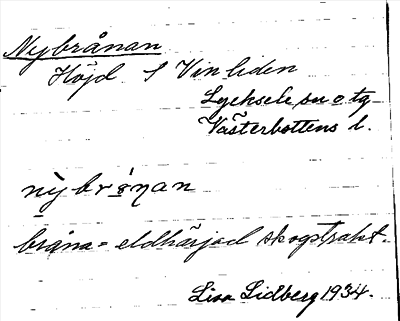 Nybrånan
Höjd S Vinliden
Lycksele sn o tg
Västerbottens l.
bråna = eldhärjad skogstrakt.
Lisa Lidberg 1934.